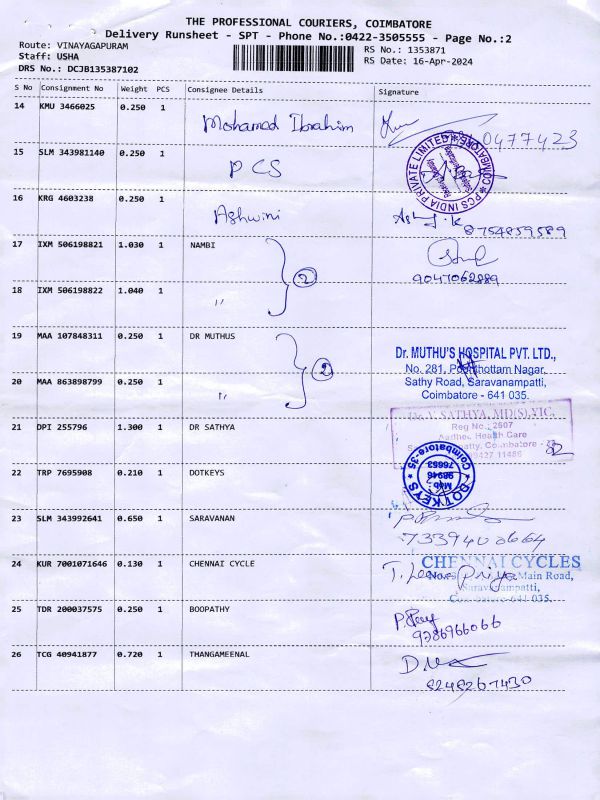 THE PROFESSIONAL COURIERS, COIMBATORE
Delivery Runsheet - SPT - Phone No.:0422-3505555 - Page No.:2
Route: VINAYAGAPURAM
RS No.: 1353871
Staff: USHA
RS Date: 16-Apr-2024
DRS No.: DCJB135387102
S No Consignment No Weight PCS Consignee Details Signature
14 KMU 3466025 0.250 1 Mohamed Ibrahim
15 SLM 343981140 0.250 1 PCS
PCS INDIA PRIVATE LIMITED * COIMBATORE
16 KRG 4603238 0.250 1 Ashwini
8754859589
17 IXM 506198821 1.030 1 NAMBI
2
9047062889
18 IXM 506198822 1.040 1 "
19 MAA 107848311 0.250 1 DR MUTHUS
2
Dr. MUTHU'S HOSPITAL PVT. LTD.,
No. 281, Poonthottam Nagar,
Sathy Road, Saravanampatti,
Coimbatore - 641 035.
20 MAA 863898799 0.250 1 "
21 DPI 255796 1.300 1 DR SATHYA
Dr. V. SATHYA, MD(S),VIC,
Reg No: 2607
Health Care
Coimbatore -
22 TRP 7695908 0.210 1 DOTKEYS
DOTKEYS
Coimbatore-35
Mob:
98946
76663
23 SLM 343992641 0.650 1 SARAVANAN
24 KUR 7001071646 0.130 1 CHENNAI CYCLE
CHENNAI CYCLES
Main Road,
Saravanampatti,
Coimbatore-641 035.
25 TDR 200037575 0.250 1 BOOPATHY
9386966066
26 TCG 40941877 0.720 1 THANGAMEENAL
8248267430